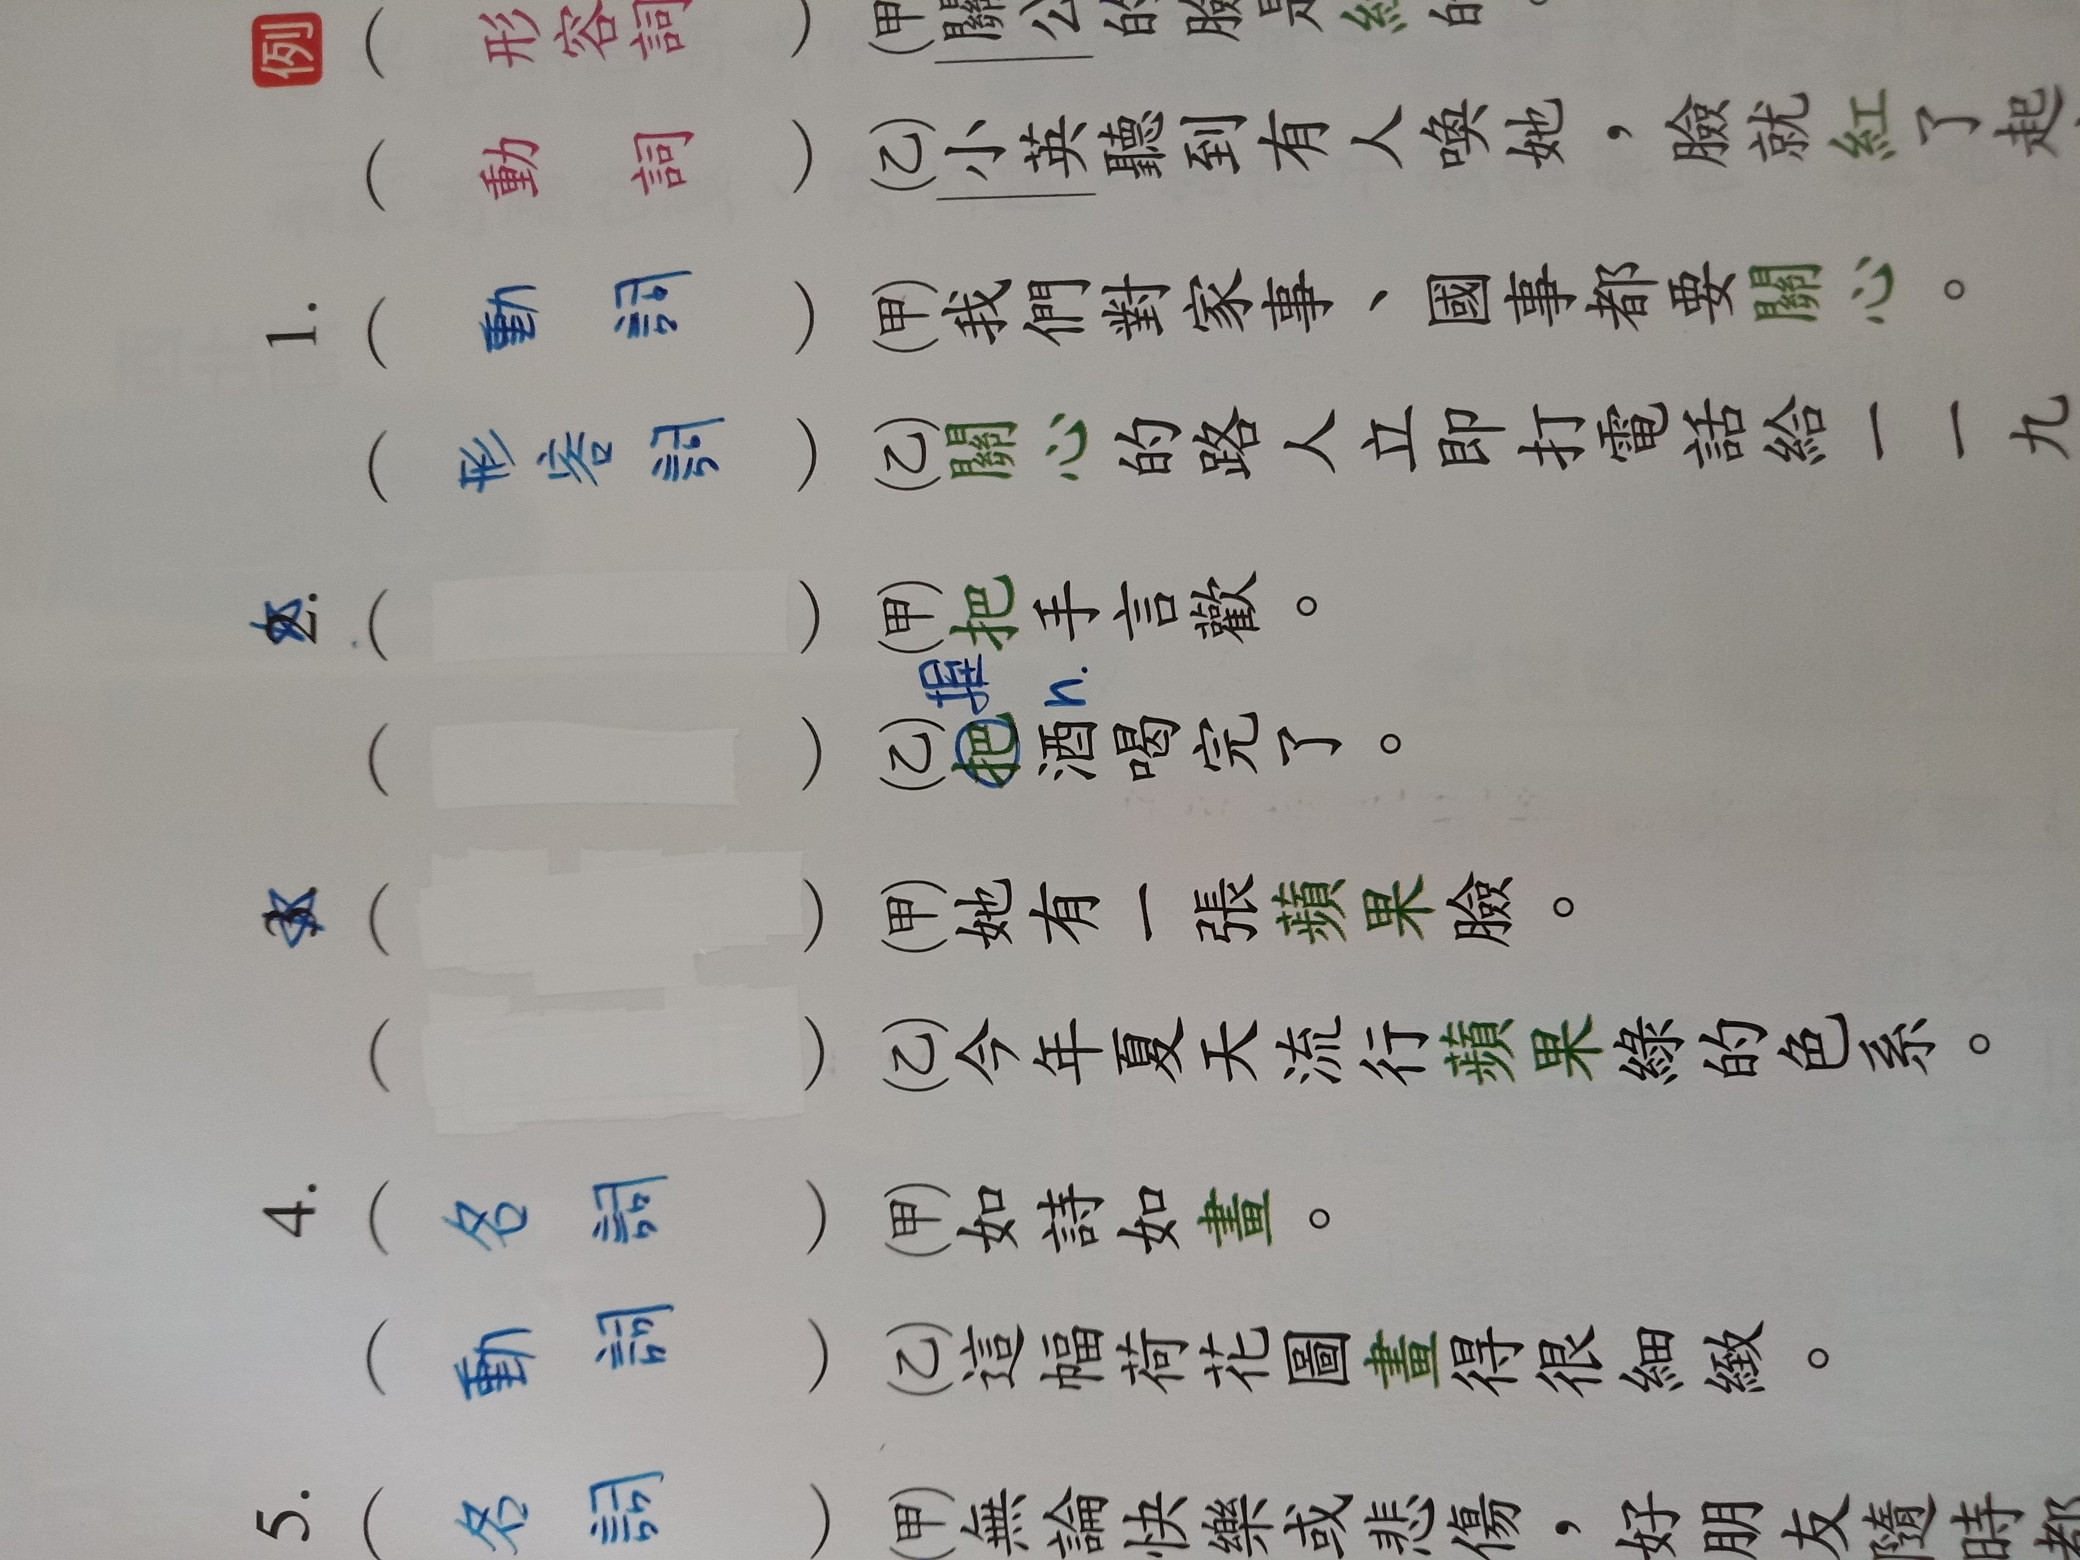 例 ( 形容詞 ) (甲)關公的臉是紅的。
( 動詞 ) (乙)小英聽到有人喚她，臉就紅了起
1. ( 動詞 ) (甲)我們對家事、國事都要關心。
( 形容詞 ) (乙)關心的路人立即打電話給一一九
2. ( ) (甲)把手言歡。
握 n.
( ) (乙)把酒喝完了。
3. ( ) (甲)她有一張蘋果臉。
( ) (乙)今年夏天流行蘋果綠的色系。
4. ( 名詞 ) (甲)如詩如畫。
( 動詞 ) (乙)這幅荷花圖畫得很細緻。
5. ( 名詞 ) (甲)無論快樂或悲傷，好朋友隨時都